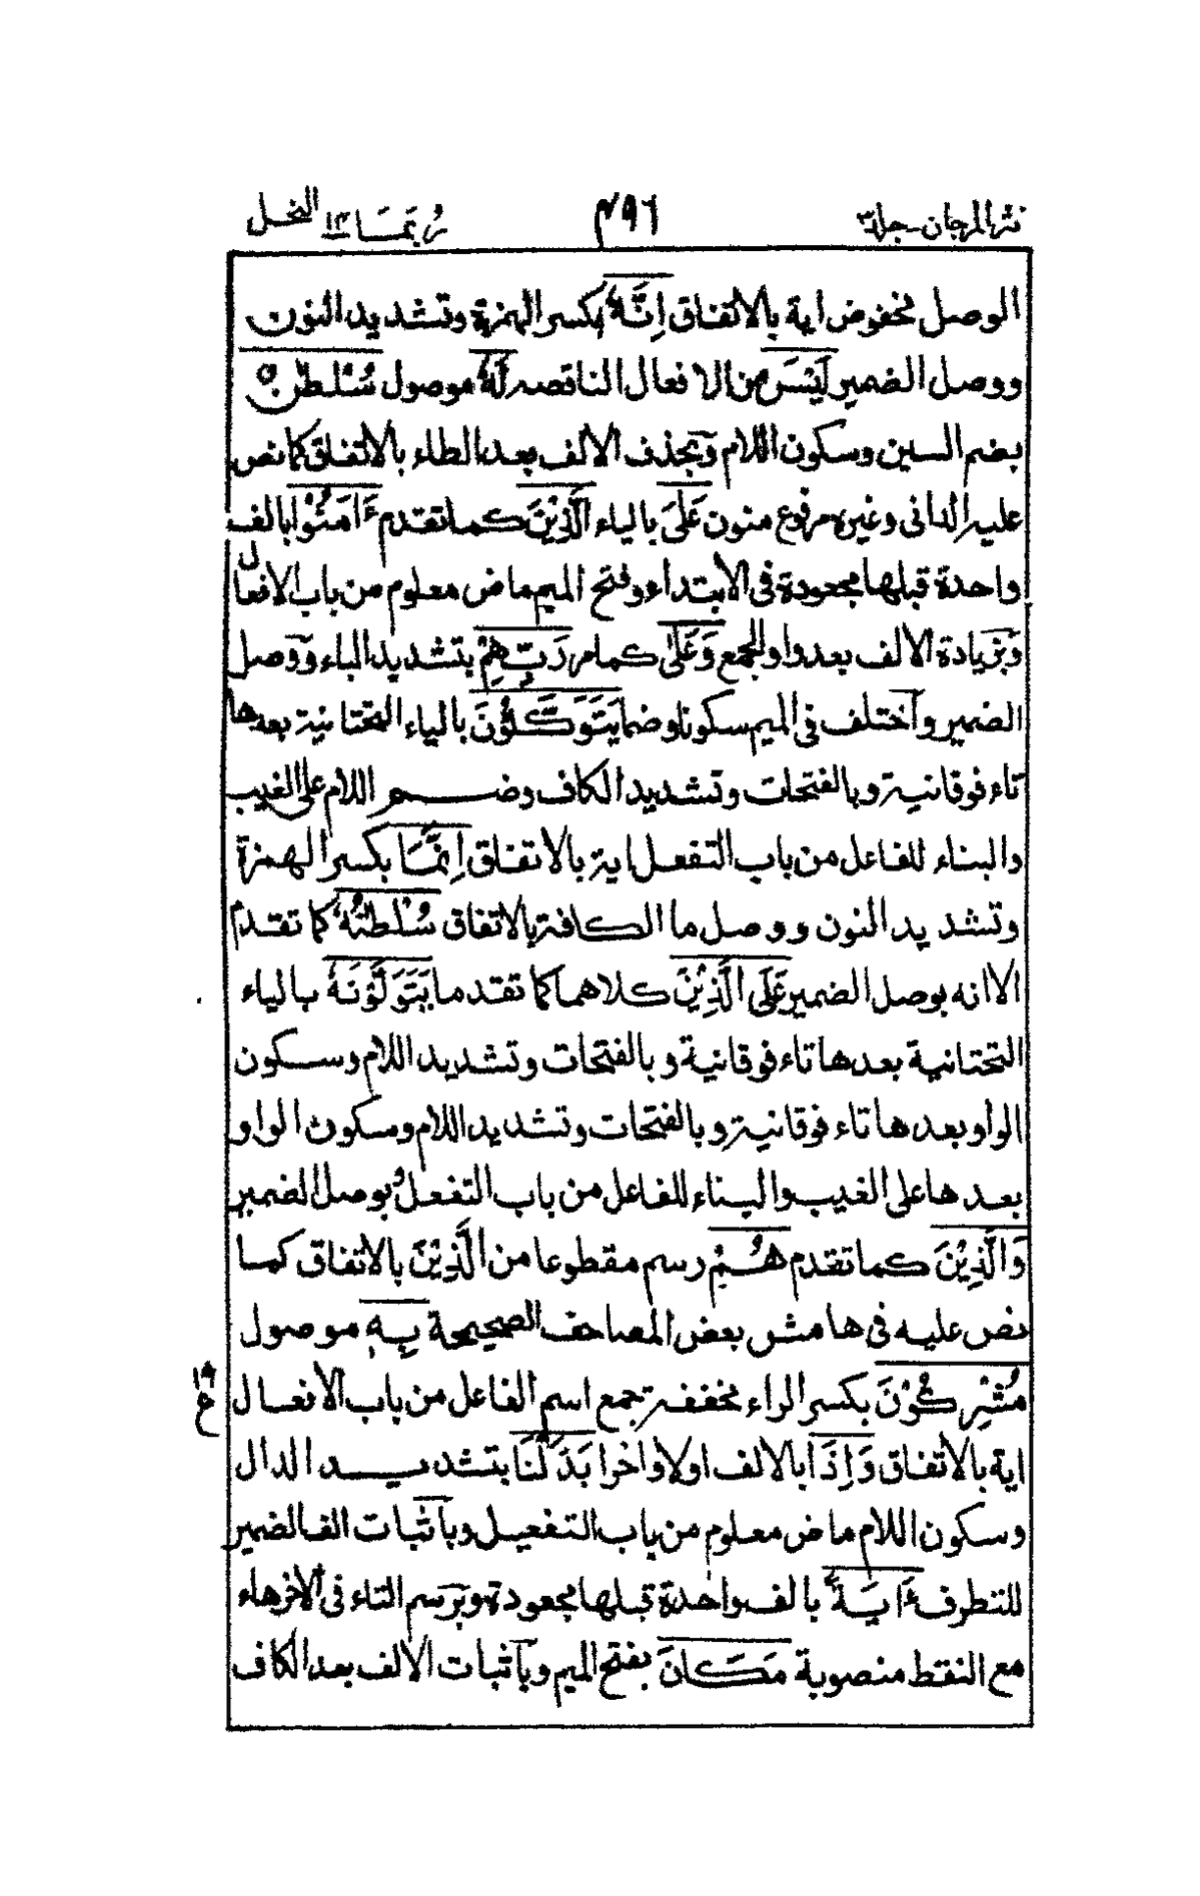 نثر المرجان - جلد ٣ ٤٩٦ رُبَمَا ١٤ النحل
الوصل مخفوض اية بالاتفاق اِنَّهٗ بكسر الهمزة وتشديد النون
ووصل الضمير لَيْسَ من الافعال الناقصه لَهٗ موصول سُلْطٰنٌ
بضم السين وسكون اللام وبحذف الالف بعد الطاء بالاتفاق كما نص
عليه الدانى وغيره مرفوع منون عَلَى بالياء الَّذِيْنَ كما تقدم ءَامَنُوْا بالف
واحدة قبلها مجعودة فى الابتداء وفتح الميم ماض معلوم من باب الافعال
وبزيادة الالف بعد واو الجمع وَعَلٰى كما مر رَبِّهِمْ بتشديد الباء ووصل
الضمير واختلف فى الميم سكونا وضما يَتَوَكَّلُوْنَ بالياء التحتانية بعدها
تاء فوقانية وبالفتحات وتشديد الكاف وضم اللام على الغيب
والبناء للفاعل من باب التفعل اية بالاتفاق اِنَّمَا بكسر الهمزة
وتشديد النون ووصل ما الكافة بالاتفاق سُلْطٰنُهٗ كما تقدم
الا انه بوصل الضمير عَلَى الَّذِيْنَ كلاهما كما تقدما يَتَوَلَّوْنَهٗ بالياء
التحتانية بعدها تاء فوقانية وبالفتحات وتشديد اللام وسكون
الواو بعدها تاء فوقانية وبالفتحات وتشديد اللام وسكون الواو
بعدها على الغيب والبناء للفاعل من باب التفعل وبوصل الضمير
وَالَّذِيْنَ كما تقدم هُمْ رسم مقطوعا من الَّذِيْنَ بالاتفاق كما
نص عليه فى هامش بعض المصاحف الصحيحة بِهٖ موصول
مُشْرِكُوْنَ بكسر الراء مخففة جمع اسم الفاعل من باب الافعال
اية بالاتفاق وَاِذَا بالالف اولا واخرا بَدَّلْنَا بتشديد الدال
وسكون اللام ماض معلوم من باب التفعيل وباثبات الف الضمير
للتطرف ءَايَةً بالف واحدة قبلها مجعودة وبرسم التاء فى الاخر هاء
مع النقط منصوبة مَكَانَ بفتح الميم وباثبات الالف بعد الكاف